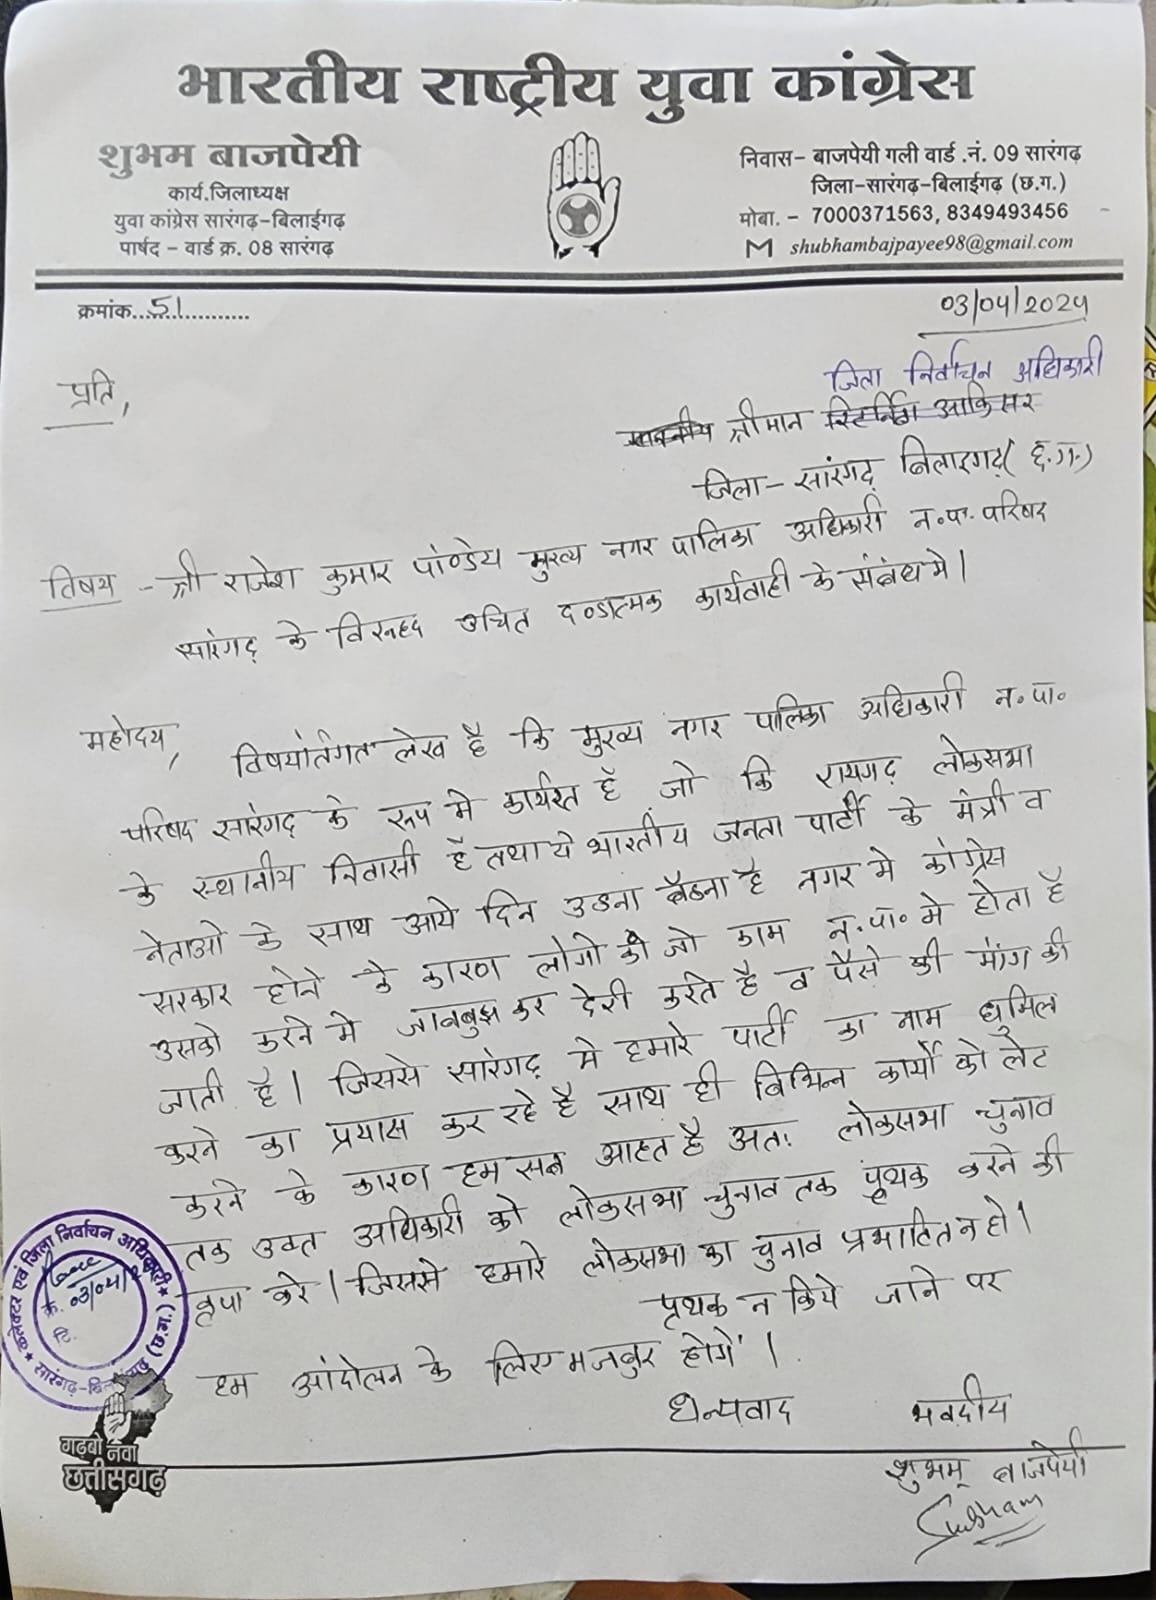 भारतीय राष्ट्रीय युवा कांग्रेस
शुभम बाजपेयी
कार्य.जिलाध्यक्ष
युवा कांग्रेस सारंगढ़-बिलाईगढ़
पार्षद - वार्ड क्र. 08 सारंगढ़
निवास- बाजपेयी गली वार्ड .नं. 09 सारंगढ़
जिला-सारंगढ़-बिलाईगढ़ (छ.ग.)
मोबा. - 7000371563, 8349493456
shubhambajpayee98@gmail.com
क्रमांक...51...............
03/04/2024
प्रति,
जिला निर्वाचन अधिकारी
श्रीमान रिटर्निंग आफिसर
जिला- सारंगढ़ बिलाईगढ़ (छ.ग.)
विषय - श्री राजेश कुमार पाण्डेय मुख्य नगर पालिका अधिकारी न.पा. परिषद
सारंगढ़ के विरूध्द उचित दण्डात्मक कार्यवाही के संबंध मे।
महोदय,
विषयांर्तगत लेख है कि मुख्य नगर पालिका अधिकारी न.पा.
परिषद सारंगढ़ के रूप मे कार्यरत है जो कि रायगढ़ लोकसभा
के स्थानीय निवासी है तथा ये भारतीय जनता पार्टी के मंत्री व
नेताओ के साथ आये दिन उठना बैठना है नगर मे कांग्रेस
सरकार होने के कारण लोगो की जो काम न.पा. मे होता है
उसको करने मे जानबुझ कर देरी करते है व पैसे की मांग की
जाती है। जिससे सारंगढ़ मे हमारे पार्टी का नाम धुमिल
करने का प्रयास कर रहे है साथ ही विभिन्न कार्यो को लेट
करने के कारण हम सब आहत है अतः लोकसभा चुनाव
तक उक्त अधिकारी को लोकसभा चुनाव तक पृथक करने की
कृपा करे। जिससे हमारे लोकसभा का चुनाव प्रभावित न हो।
पृथक न किये जाने पर
हम आंदोलन के लिए मजबुर होगें।
धन्यवाद
भवदीय
शुभम् बाजपेयी
Shubham
कलेक्टर एवं जिला निर्वाचन अधिकारी
क्र. 03/04/24
दि.
सारंगढ़-बिलाईगढ़ (छ.ग.)
गढ़बो नवा
छत्तीसगढ़